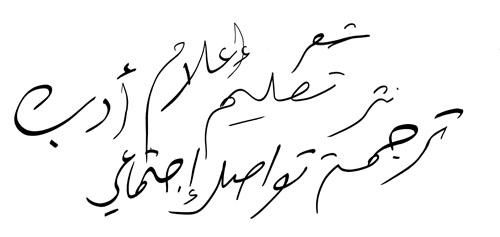 شعر
إعلام
نثر تعليم أدب
ترجمة تواصل إجتماعي